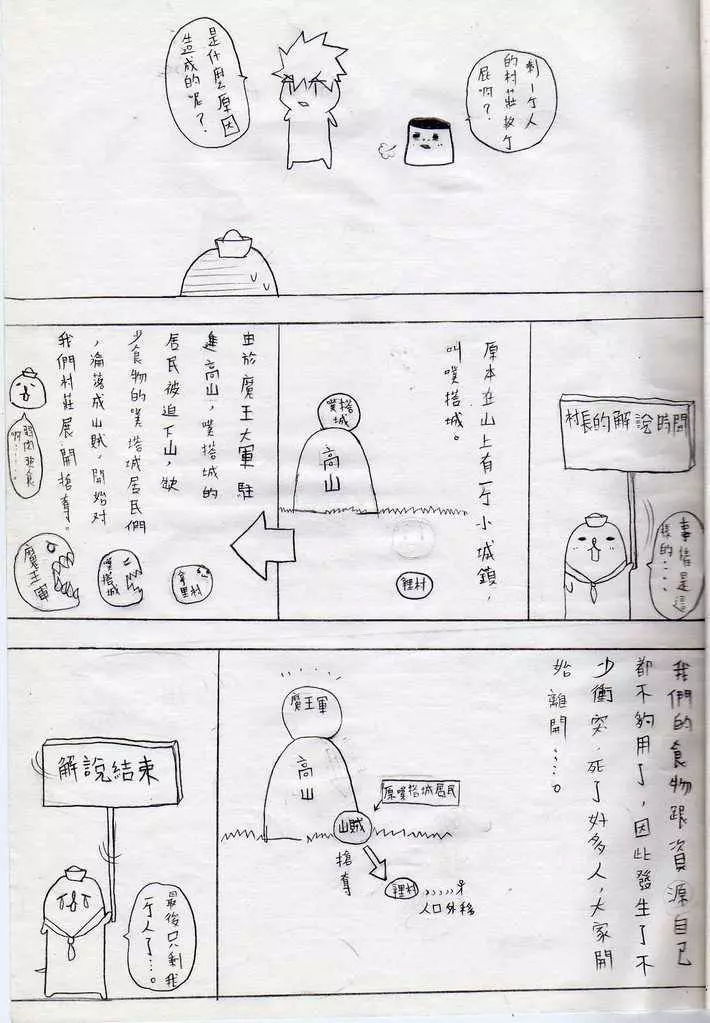 剩一個人
的村莊救個
屁啊?
是什麼原因
造成的呢?
村長的解說時間
事情是這
樣的....
原本在山上有一個小城鎮,
叫噗搭城。
噗搭城
高山
裡村
由於魔王大軍駐
進高山,噗塔城的
居民被迫下山,缺
少食物的噗塔城居民們
,淪落成山賊,開始對
我們村莊展開搶奪。
魔王軍
噗搭城
拿里村
我們的食物跟資源自己
都不夠用了,因此發生了不
少衝突,死了好多人,大家開
始離開....。
魔王軍
高山
原噗搭城居民
山賊
搶奪
裡村
人口外移
解說結束
最後只剩我
一個人了...。